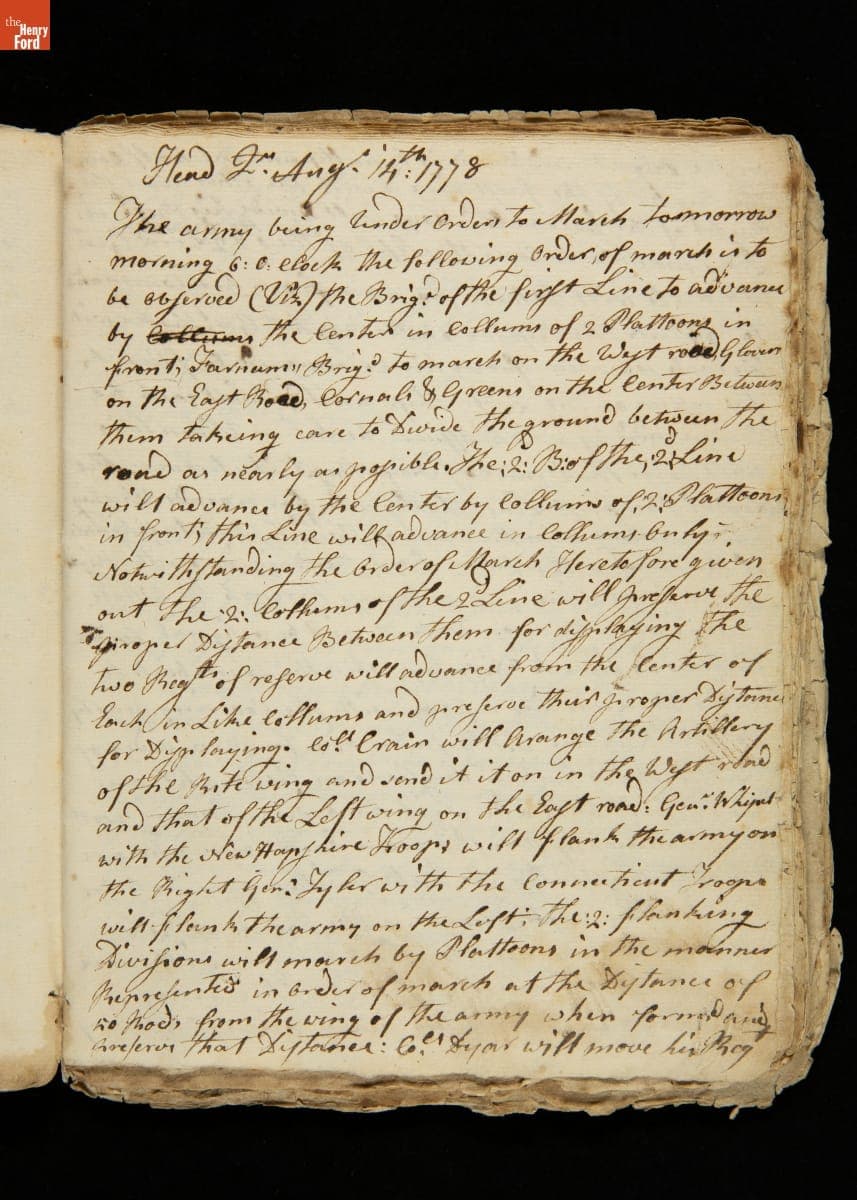 the
Henry
Ford
Head Qrs Augst 14th: 1778
The army being Under Orders to March tomorrow
morning 6: o: clock the following Order, of march is to
be observed (Viz) the Brigd of the first Line to advance
by Collums the Center in Collums of 2 Plattoons in
front; Farnums Brigd to march on the West road, Glovers
on the East Road, Cornals & Greens on the Center Between
them takeing care to Divide the ground between the
road as nearly as possible. The :2d: B: of the :2d: Line
will advance by the Center by Collums of :2: Plattoons
in front; this Line will advance in Collums
Notwithstanding the Order of March Heretofore given
out the :2: Collums of the 2d Line will preserve the
proper Distance Between them for displaying the
two Regts of reserve will advance from the Center of
Each in Like Collums and preserve their proper Distance
for Displaying. Col: Crain will Arange the Artillery
of the Rite wing and send it it on in the West road
and that of the Left wing on the East road: Genl: Whipel
with the New Hapshire Troops will flank the army on
the Right Genl: Tyler with the Connecticut Troops
will flank the army on the Left; The :2: flanking
Divisions will march by Plattoons in the manner
Represented in Order of march at the Distance of
50 Rods from the wing of the army when formd and
preserve that Distance: Col Dyar will move his Regt